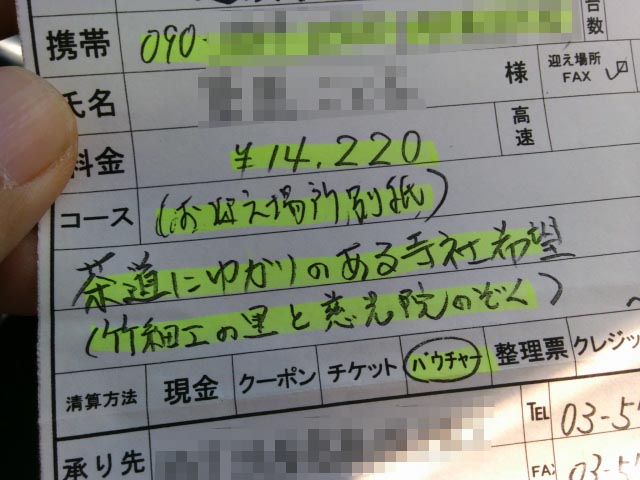 台数
携帯 090-
氏名 様 迎え場所 FAX
料金 ¥14.220 高速
コース (お迎え場所別紙)
茶道にゆかりのある寺社希望
(竹細工の里と慈光院のぞく)
清算方法 現金 クーポン チケット バウチャー 整理票 クレジッ
承り先 TEL 03-5
FAX 03-5